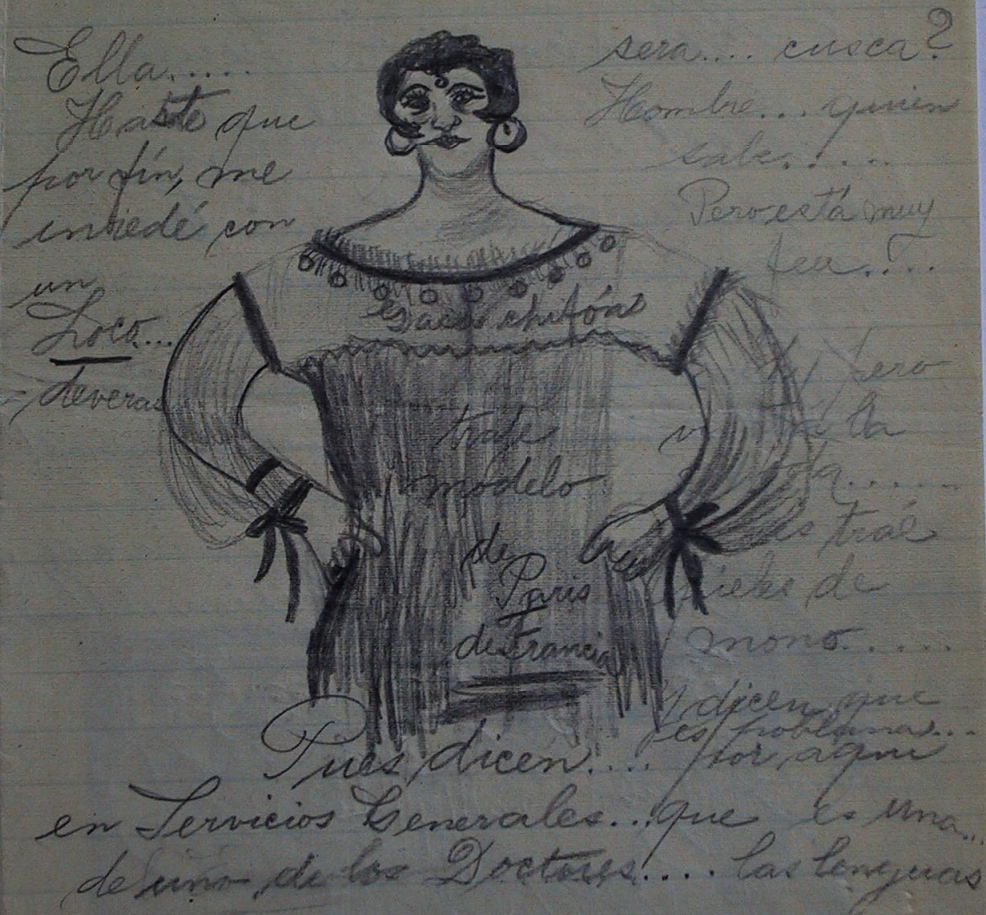 Ella.....
Haste que
por fín, me
enriedé con
un
Loco...
deveras
sera.... cusca?
Hombre... quien
sabe......
Pero está muy
fea.....
chifón
traje
modelo
de
Paris
de Francia
y pero
la
traé
de
mono.....
y dicen que
es poblana...
Pues dicen.... por aqui
en Servicios Generales... que es una...
de uno de los Doctores.... las lenguas